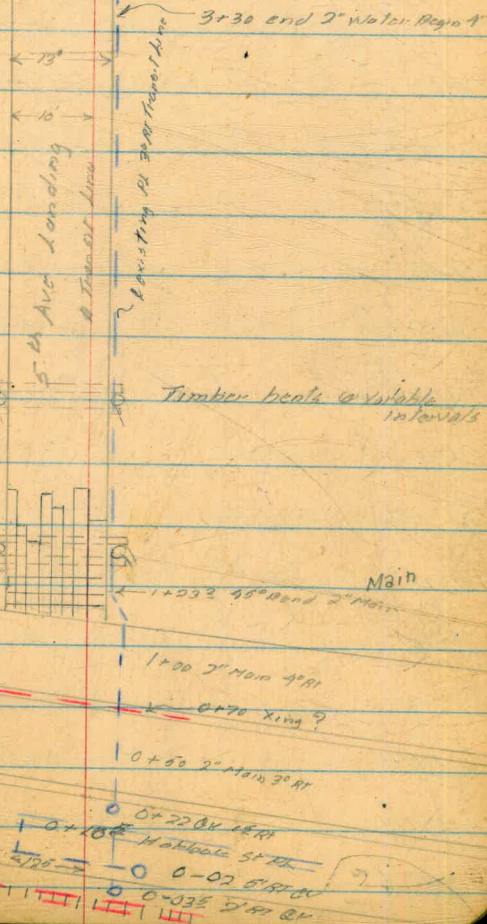 3+30 end 2" Water Begin 4"
13'
10'
5th Ave Landing
Transit Line
existing PL 3' Rt Transit Line
Timber bents @ variable
intervals
Main
1+233 45° Bend 2" Main
1+00 2" Main 4' Rt
0+70 Xing ?
0+50 2" Main 3' Rt
0+22 GV Rt
St
0-02 5' RT GV
0-035 2' RT GV